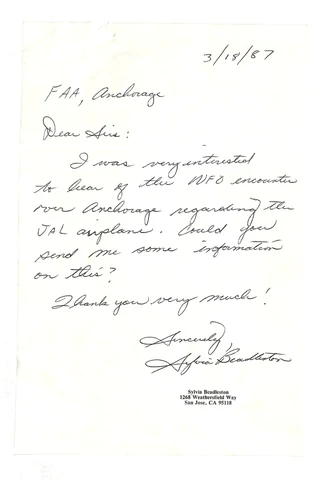 3/18/87
FAA, Anchorage
Dear Sirs:
I was very interested
to hear of the UFO encounter
over Anchorage regarding the
JAL airplane. Could you
send me some information
on this?
Thank you very much!
Sincerely,
Sylvia Beadleston
Sylvia Beadleston
1268 Weathersfield Way
San Jose, CA 95118